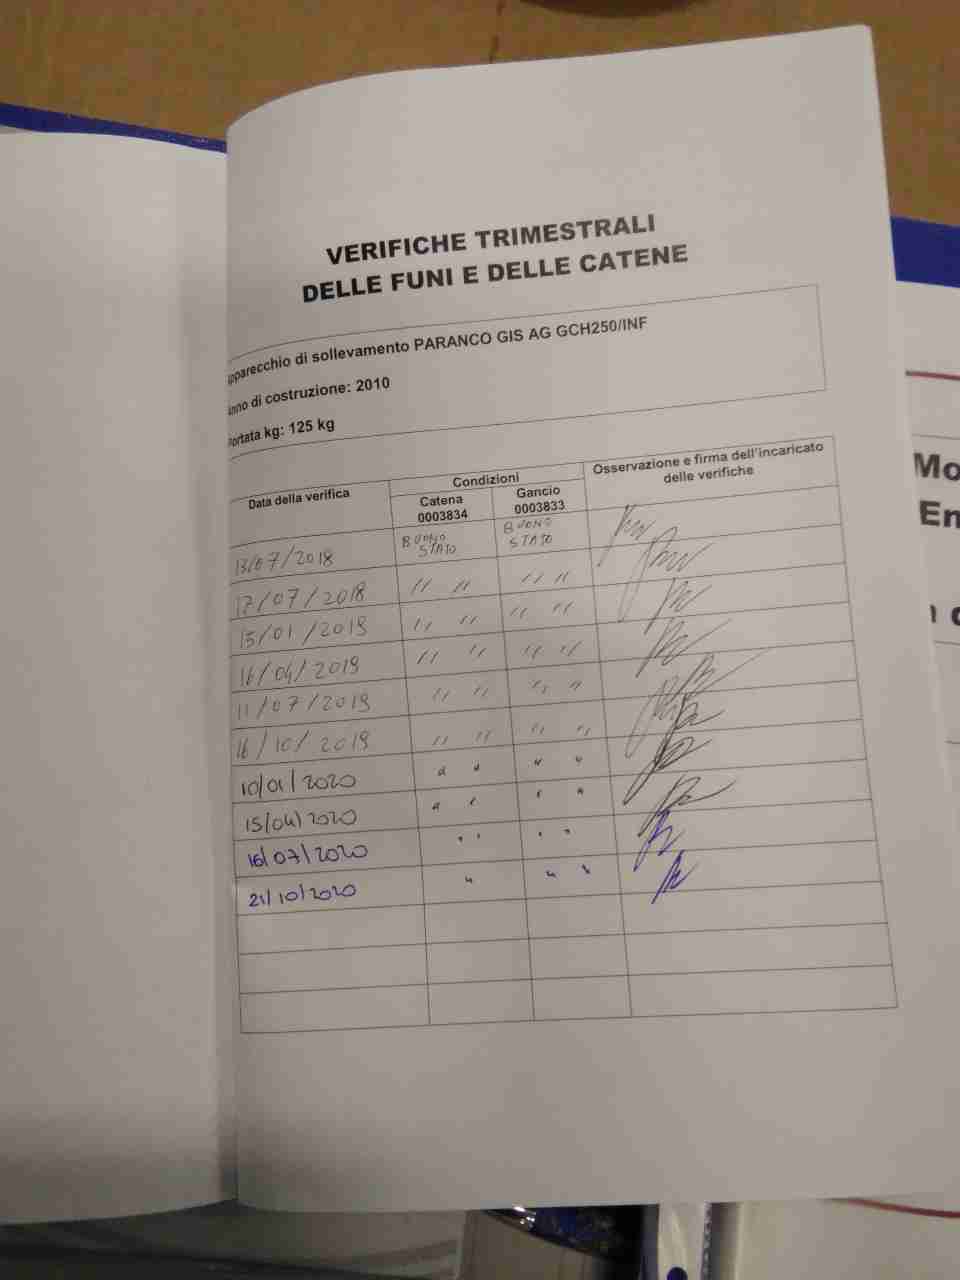 VERIFICHE TRIMESTRALI
DELLE FUNI E DELLE CATENE
pparecchio di sollevamento PARANCO GIS AG GCH250/INF
nno di costruzione: 2010
ortata kg: 125 kg
Data della verifica
Condizioni
Osservazione e firma dell'incaricato
delle verifiche
Catena
0003834
Gancio
0003833
13/07/2018 BUONO STATO BUONO STATO
17/07/2018 " " " "
15/01/2019 " " " "
16/04/2019 " " " "
11/07/2019 " " " "
16/10/2019 " " " "
10/01/2020 " " " "
15/04/2020 " " " "
16/07/2020 " " " "
21/10/2020 " " "
Mo
En